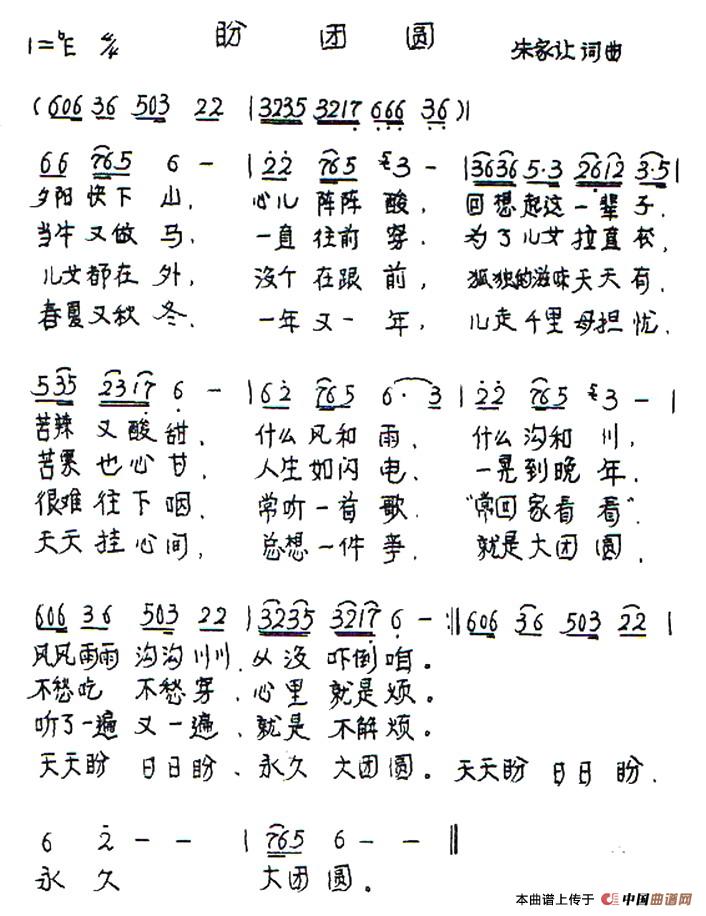 盼 团 圆
1=♭E 4/4 朱家让 词曲
(606 36 503 22 | 3235 3217 666 36)|
66 765 6 - | 22 765 3 - | 3636 5·3 2612 3·5 |
夕阳 快下 山, 心儿 阵阵 酸, 回想 起这 一辈 子,
当牛 又做 马, 一直 往前 穿, 为了 儿女 拉直
儿女 都在 外, 没个 在跟 前, 孤独的滋味 天天 有,
春夏 又秋 冬, 一年 又一 年, 儿走 千里 母担 忧,
535 2317 6 - | 62 765 6·3 | 22 765 3 - |
苦辣 又酸 甜, 什么 风和 雨, 什么 沟和 川,
苦累 也心 甘, 人生 如闪 电, 一晃 到晚 年,
很难 往下 咽, 常听 一首 歌, “常回 家看 看”,
天天 挂心 间, 总想 一件 事, 就是 大团 圆,
606 36 503 22 | 3235 3217 6 - :‖ 606 36 503 22 |
风风雨雨 沟沟川川, 从没 吓倒咱。
不愁吃 不愁穿, 心里 就是烦。
听了一遍 又一遍, 就是 不解烦。
天天盼 日日盼, 永久 大团圆。 天天盼 日日盼,
6 2 - - | 765 6 - - ‖
永 久 大团 圆。
本曲谱上传于 中国曲谱网